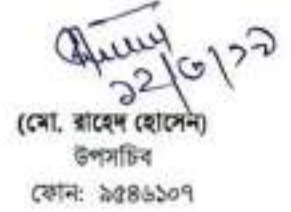 ১২/৩/১৯
(মো. রাহেদ হোসেন)
উপসচিব
ফোন: ৯৫৪৬১০৭